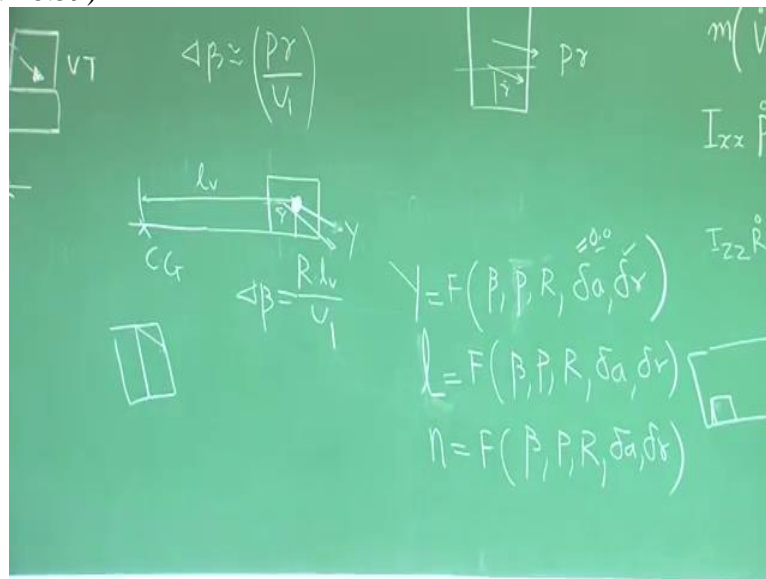 VT
Δβ ≃ (Pr/U₁)
Pr
m(V̇
Iₓₓ Ṗ
I_zz Ṙ
lᵥ
Y
CG
Δβ = R·lᵥ/U₁
≃0.0 ✓
Y = F(β, P, R, δa, δr)
l = F(β, P, R, δa, δr)
n = F(β, P, R, δa, δr)